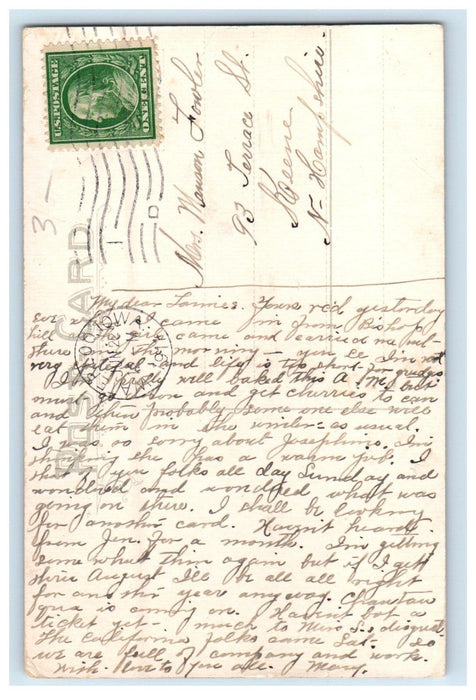 U.S. POSTAGE
ONE CENT
Mrs. Warren Fowler
93 Terrace St.
Keene
N- Hampshire.
3 -
POST CARD
WATERLOO IOWA
My dear Fannie. Yours rec'd yesterday
came in from Bishop
hill came and carried me out
there this morning - you see I'm not
very and life is too short for grudges
I baked this A.M. but
must go down and get cherries to can
and then probably some one else will
eat them in the winter as usual.
I was so sorry about Josephine. I'm
thinking she has a warm job. I
you folks all day Sunday and
wondered and wondered what was
going on there. I shall be looking
for another card. Haven't heard
from Jen. for a month. I'm getting
some what thin again but if I get
thru August I'll be all all right
for another year anyway. Chautau
qua is coming on. Haven't bot our
ticket yet - much to Miss S.s disgust.
The California folks came Sat. so
we are full of company and work.
with love to you all. Mary.